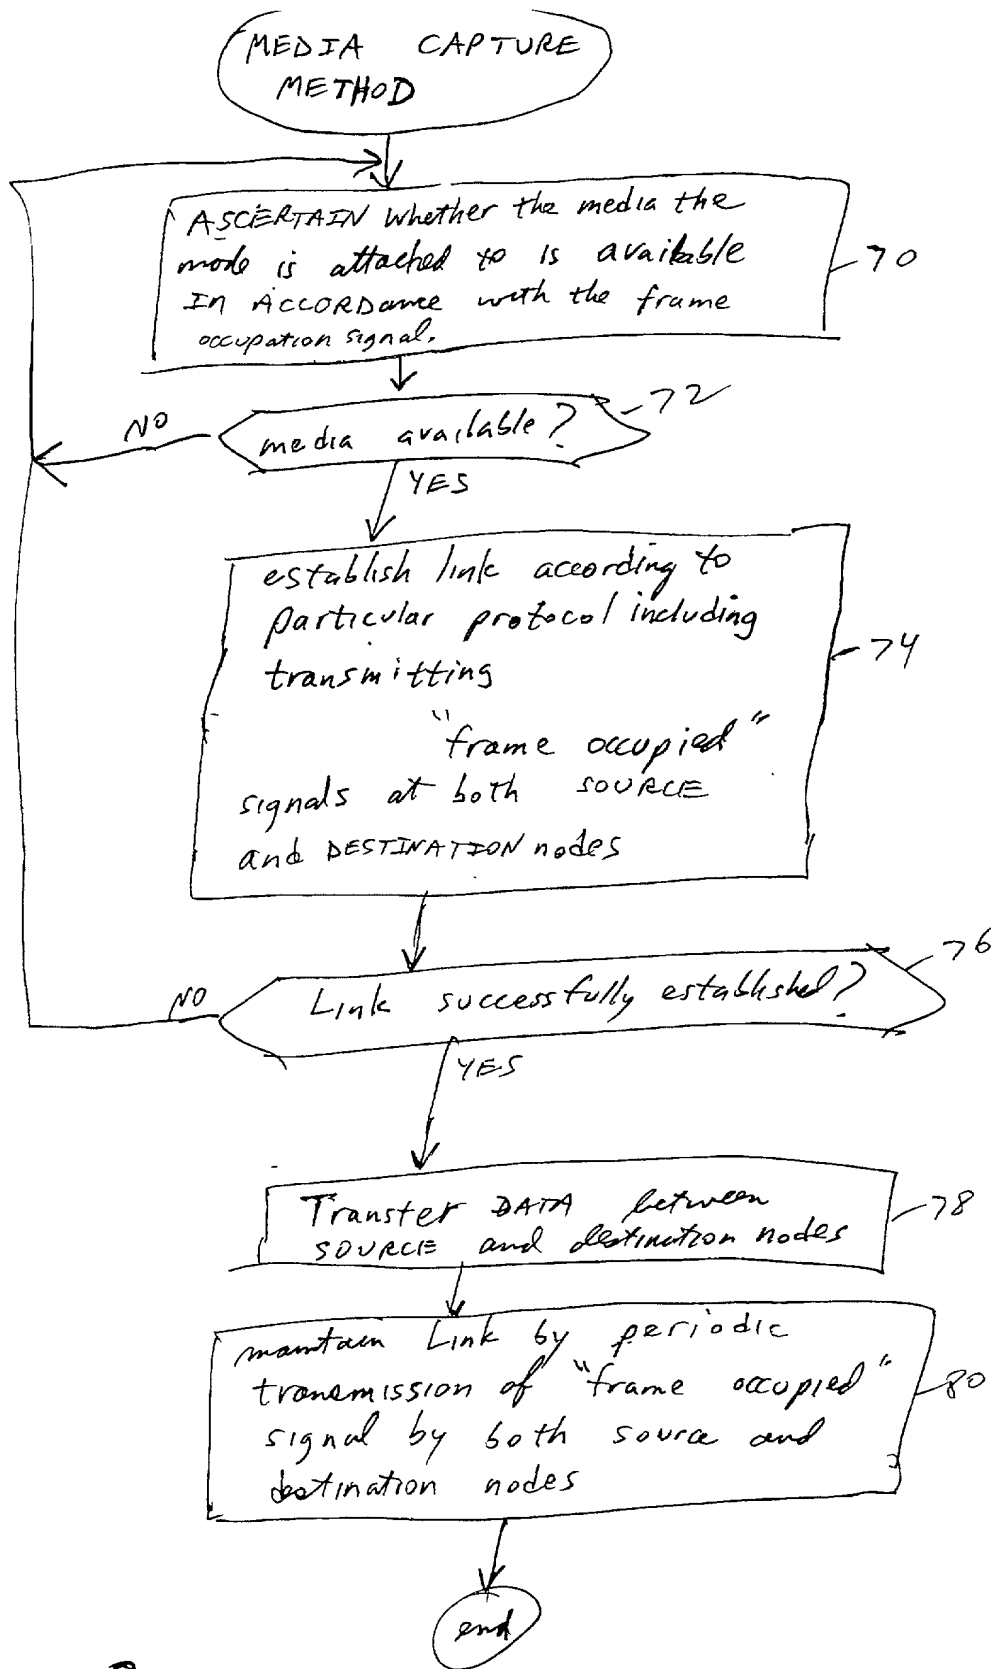 MEDIA CAPTURE
METHOD
ASCERTAIN whether the media the
mode is attached to is available
IN ACCORDance with the frame
occupation signal.
70
media available?
72
NO
YES
establish link according to
particular protocol including
transmitting
"frame occupied"
signals at both SOURCE
and DESTINATION nodes
74
Link successfully established?
76
NO
YES
Transfer DATA between
SOURCE and destination nodes
78
maintain Link by periodic
transmission of "frame occupied"
signal by both source and
destination nodes
80
end